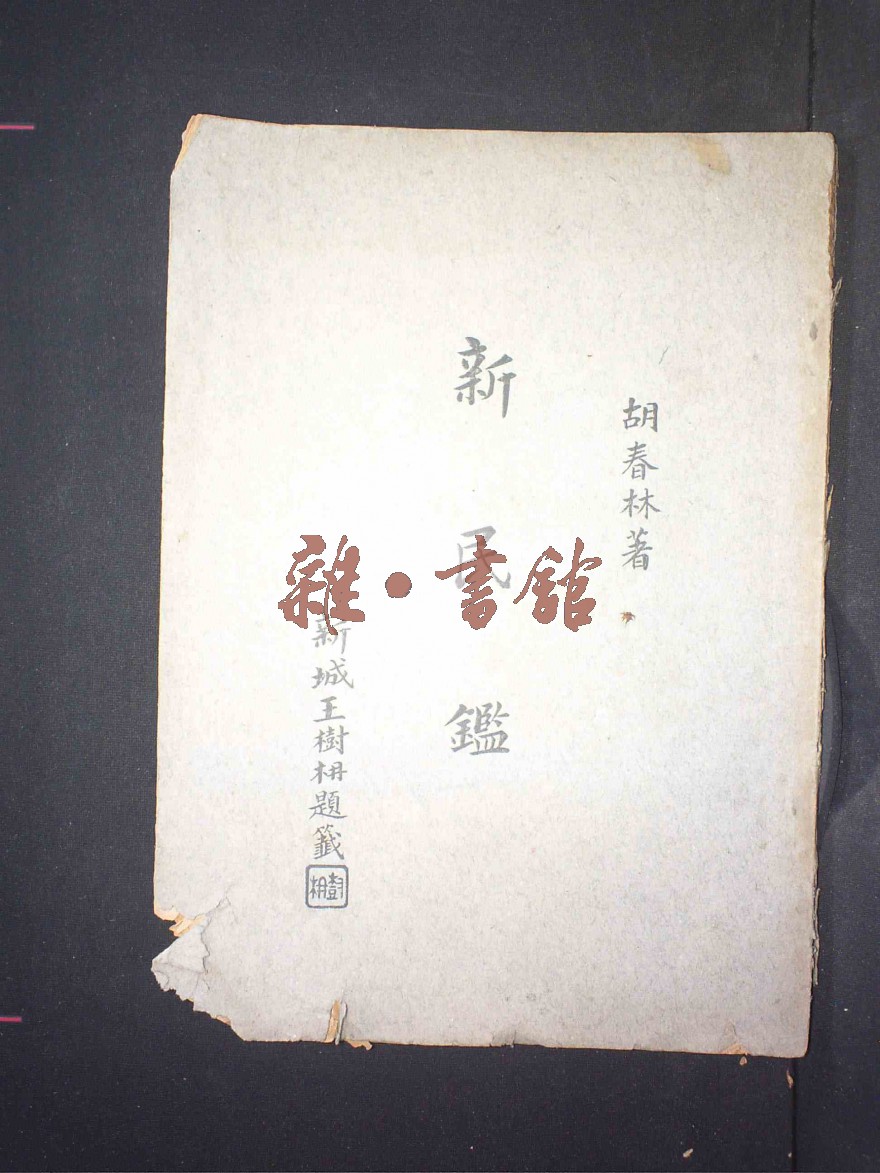 胡春林著
新民鑑
新城王樹枏題籤
樹枏
雜·書館